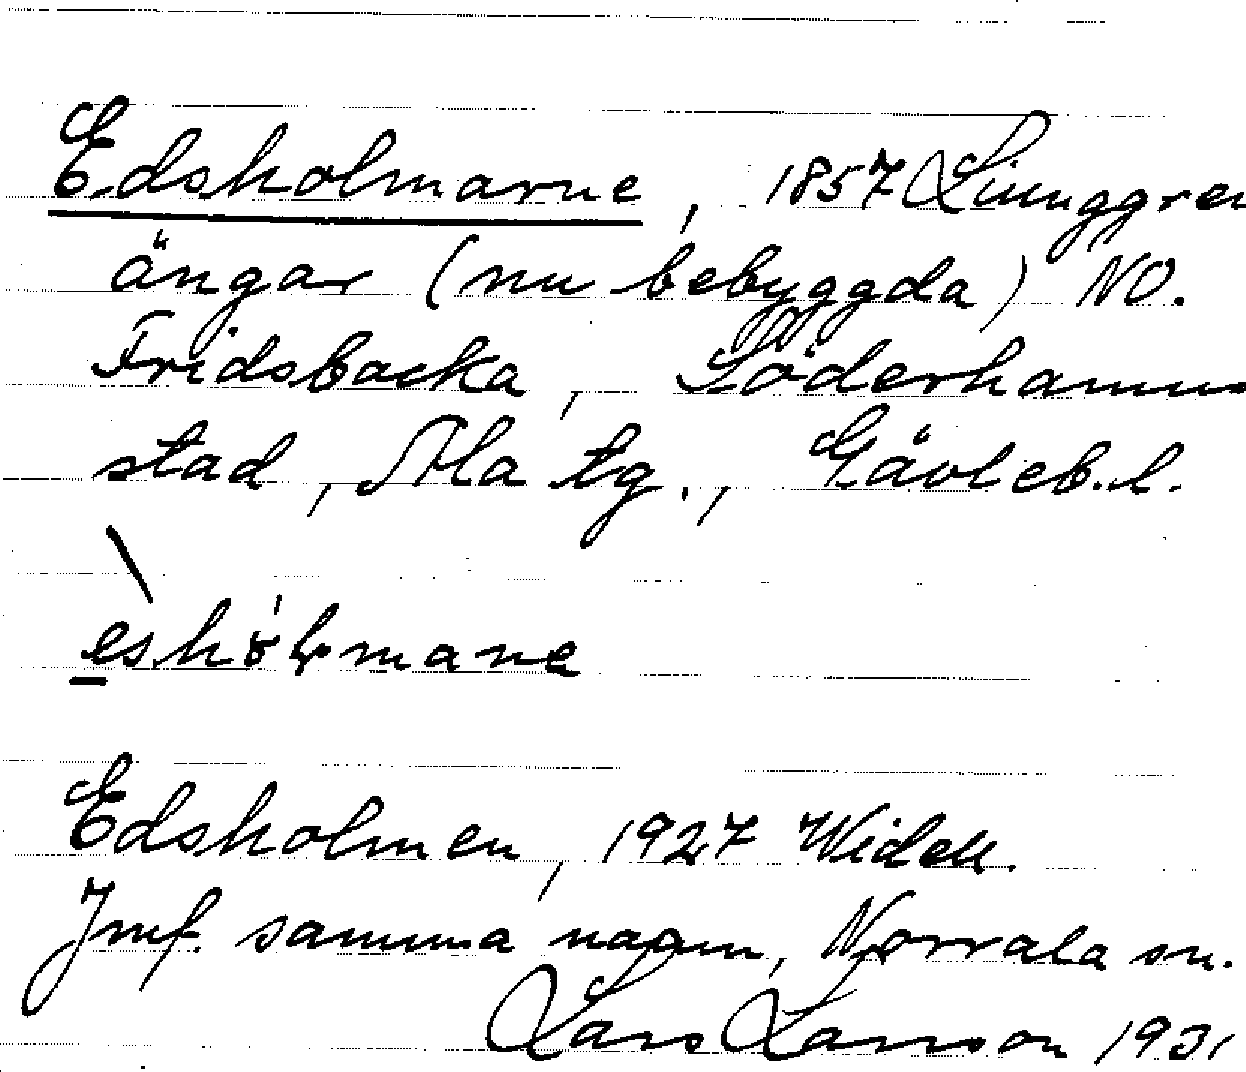 Edsholmarne, 1857 Ljunggren
ängar (nu bebyggda) NO.
Fridsbacka, Söderhamns
stad, Ala tg., Gävleb. l.
Edsholmen, 1927 Widell.
Jmf. samma namn, Norrala sn.
Lars Larsson 1931